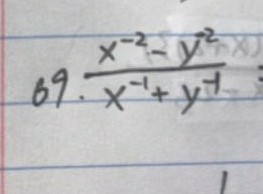 69. \frac{x^{-2} - y^{-2}}{x^{-1} + y^{-1}} =